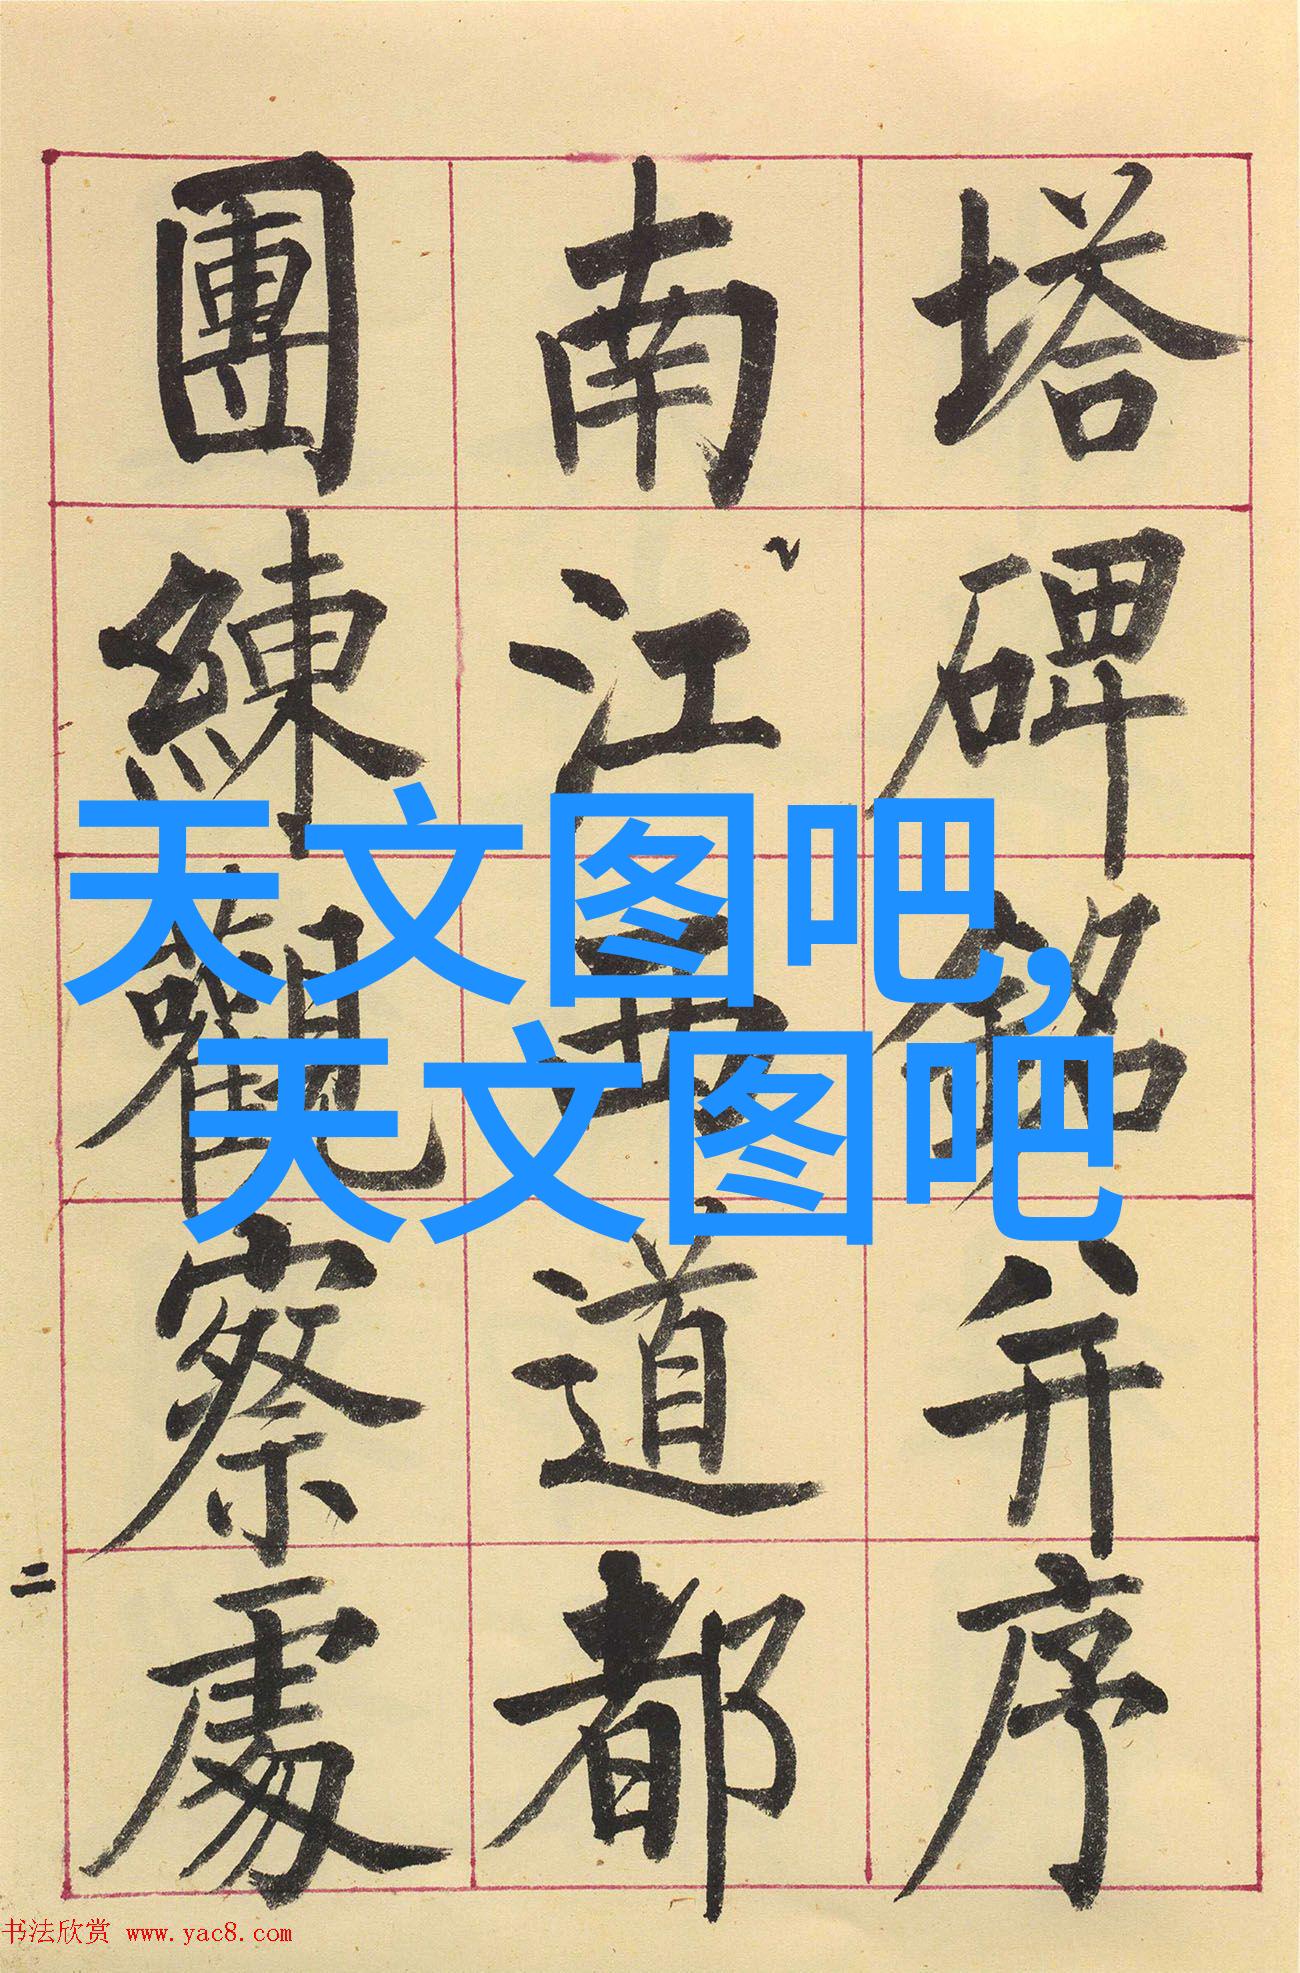 塔碑銘并序
南江西道都
團練觀察處
二
天文图吧,
天文图吧
书法欣赏 www.yac8.com